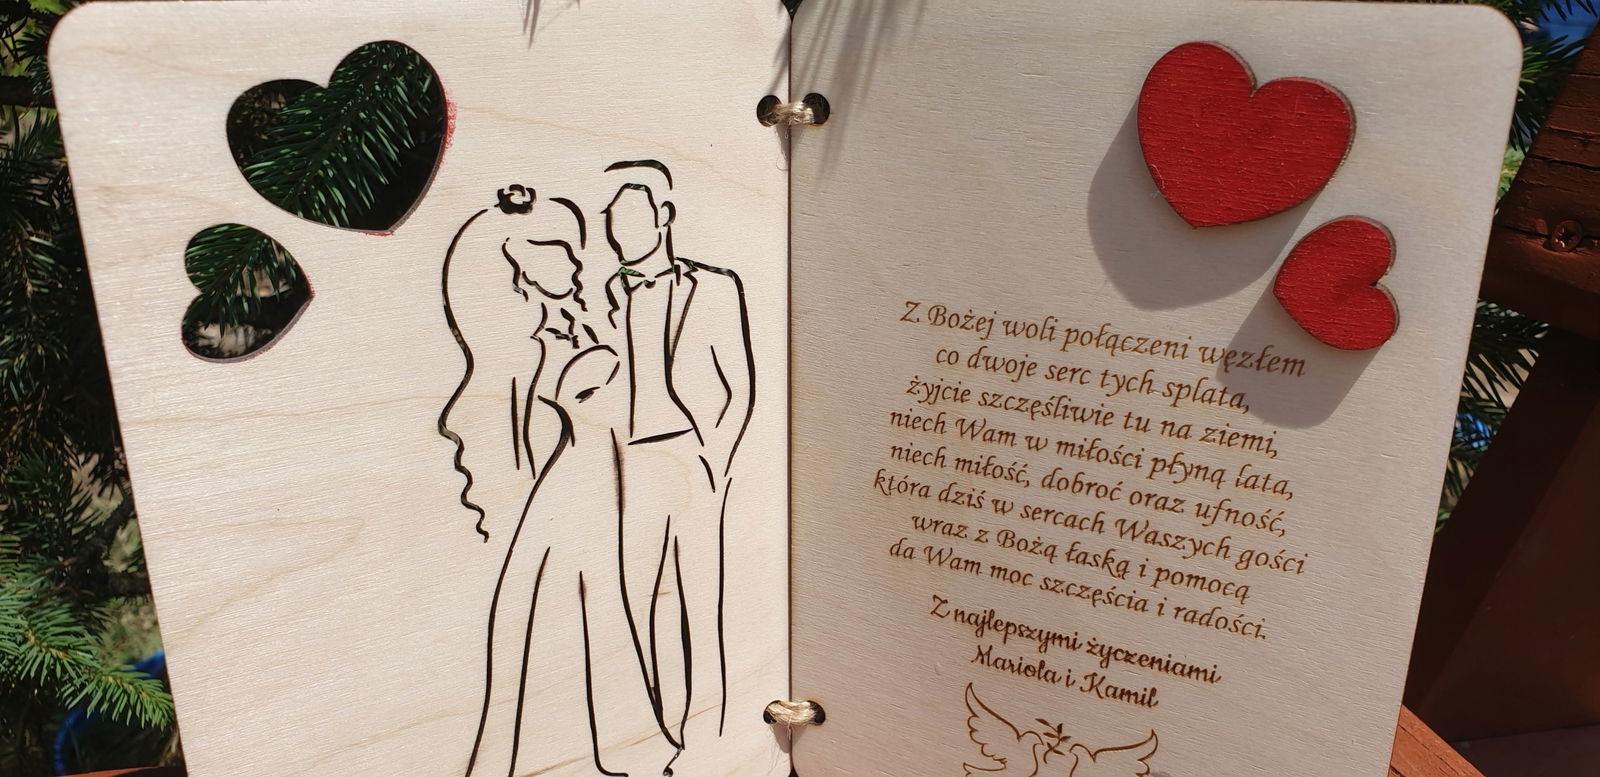 Z Bożej woli połączeni węzłem
co dwoje serc tych splata,
żyjcie szczęśliwie tu na ziemi,
niech Wam w miłości płyną lata,
niech miłość, dobroć oraz ufność,
która dziś w sercach Waszych gości
wraz z Bożą łaską i pomocą
da Wam moc szczęścia i radości.
Z najlepszymi życzeniami
Mariola i Kamil